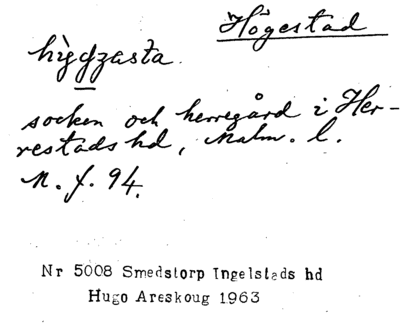 Högestad
hìggzasta.
socken och herregård i Her-
restads hd, Malm. l.
N. f. 94.
Nr 5008 Smedstorp Ingelstads hd
Hugo Areskoug 1963